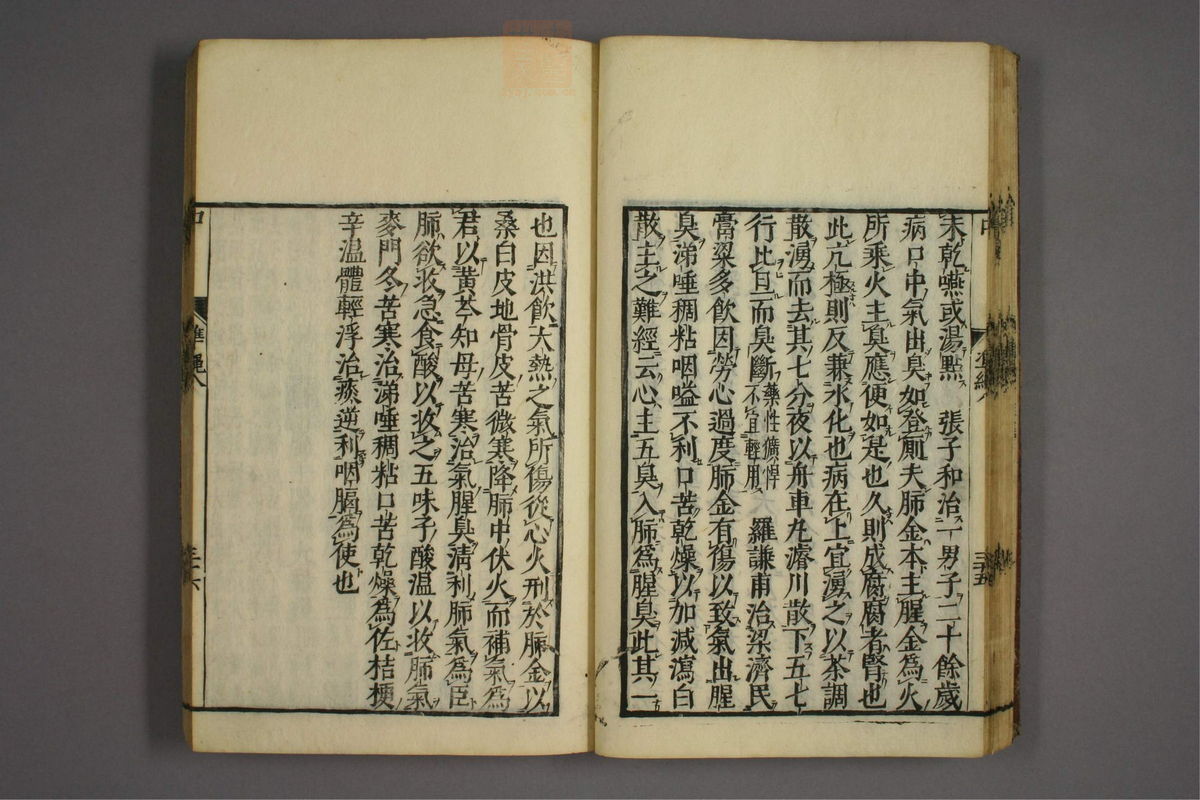 未乾嚥或湯點　張子和治一男子二十餘歲
病口中氣出臭如登廁夫肺金本主腥金為火
所乘火主臭應便如是也久則成腐腐者腎也
此亢極則反兼水化也病在上宜湧之以茶調
散湧而去其七分夜以舟車丸濬川散下五七
行比旦而臭斷藥性獷悍不宜輕用　羅謙甫治梁濟民
膏粱多飲因勞心過度肺金有傷以致氣出腥
臭涕唾稠粘咽嗌不利口苦乾燥以加減瀉白
散主之難經云心主五臭入肺爲腥臭此其一
也因洪飲大熱之氣所傷從心火刑於肺金以
桑白皮地骨皮苦微寒降肺中伏火而補氣爲
君以黃芩知母苦寒治氣腥臭淸利肺氣爲臣
肺欲收急食酸以收之五味子酸温以收肺氣
麥門冬苦寒治涕唾稠粘口苦乾燥為佐桔梗
辛温體輕浮治痰逆利咽膈為使也
口
準繩八
三十六